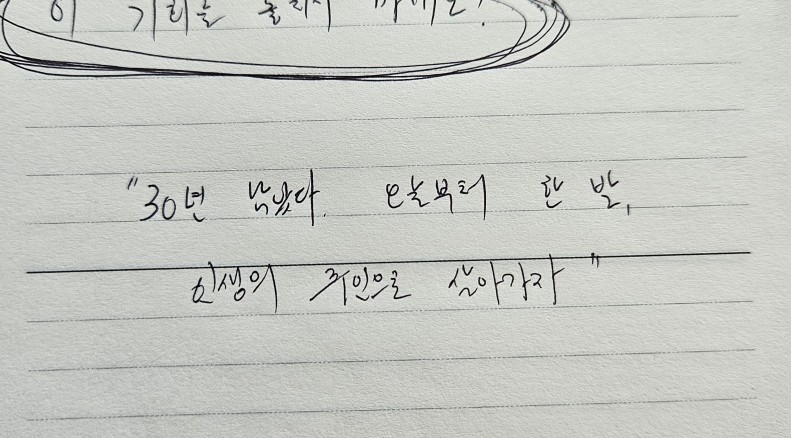 이 기회를 놓치지 마세요!
"30년 남았다. 오늘부터 한 발,
인생의 주인으로 살아가자"